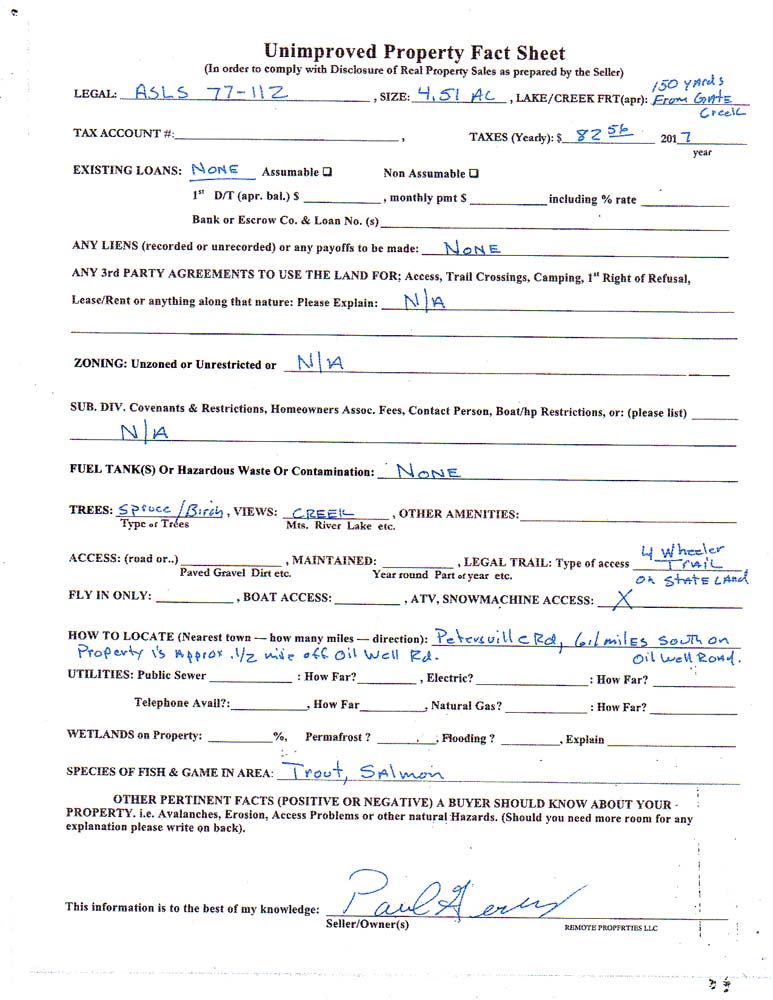 Unimproved Property Fact Sheet
(In order to comply with Disclosure of Real Property Sales as prepared by the Seller)
LEGAL: ASLS 77-112, SIZE: 4.51 AC, LAKE/CREEK FRT(apr): 150 YARDS From GATE Creek
TAX ACCOUNT #:, TAXES (Yearly): $ 82 56 2017
year
EXISTING LOANS: NONE Assumable ❑ Non Assumable ❑
1st D/T (apr. bal.) $ , monthly pmt $ including % rate
Bank or Escrow Co. & Loan No. (s)
ANY LIENS (recorded or unrecorded) or any payoffs to be made: NONE
ANY 3rd PARTY AGREEMENTS TO USE THE LAND FOR; Access, Trail Crossings, Camping, 1st Right of Refusal,
Lease/Rent or anything along that nature: Please Explain: N/A
ZONING: Unzoned or Unrestricted or N/A
SUB. DIV. Covenants & Restrictions, Homeowners Assoc. Fees, Contact Person, Boat/hp Restrictions, or: (please list)
N/A
FUEL TANK(S) Or Hazardous Waste Or Contamination: NONE
TREES: Spruce/Birch, VIEWS: CREEK, OTHER AMENITIES:
Type of Trees Mts. River Lake etc.
ACCESS: (road or..) , MAINTAINED: , LEGAL TRAIL: Type of access 4 Wheeler TRAIL
Paved Gravel Dirt etc. Year round Part of year etc. on STATE LAnd
FLY IN ONLY: , BOAT ACCESS: , ATV, SNOWMACHINE ACCESS: X
HOW TO LOCATE (Nearest town — how many miles — direction): Petersville Rd, 6.1 milES South on
Property is Approx. 1/2 mile off Oil Well Rd. Oil Well ROAd.
UTILITIES: Public Sewer : How Far? , Electric? : How Far?
Telephone Avail?: , How Far , Natural Gas? : How Far?
WETLANDS on Property: %, Permafrost ? , Flooding ? , Explain
SPECIES OF FISH & GAME IN AREA: Trout, SAlmon
OTHER PERTINENT FACTS (POSITIVE OR NEGATIVE) A BUYER SHOULD KNOW ABOUT YOUR
PROPERTY. i.e. Avalanches, Erosion, Access Problems or other natural Hazards. (Should you need more room for any
explanation please write on back).
This information is to the best of my knowledge: Paul
Seller/Owner(s) REMOTE PROPERTIES LLC